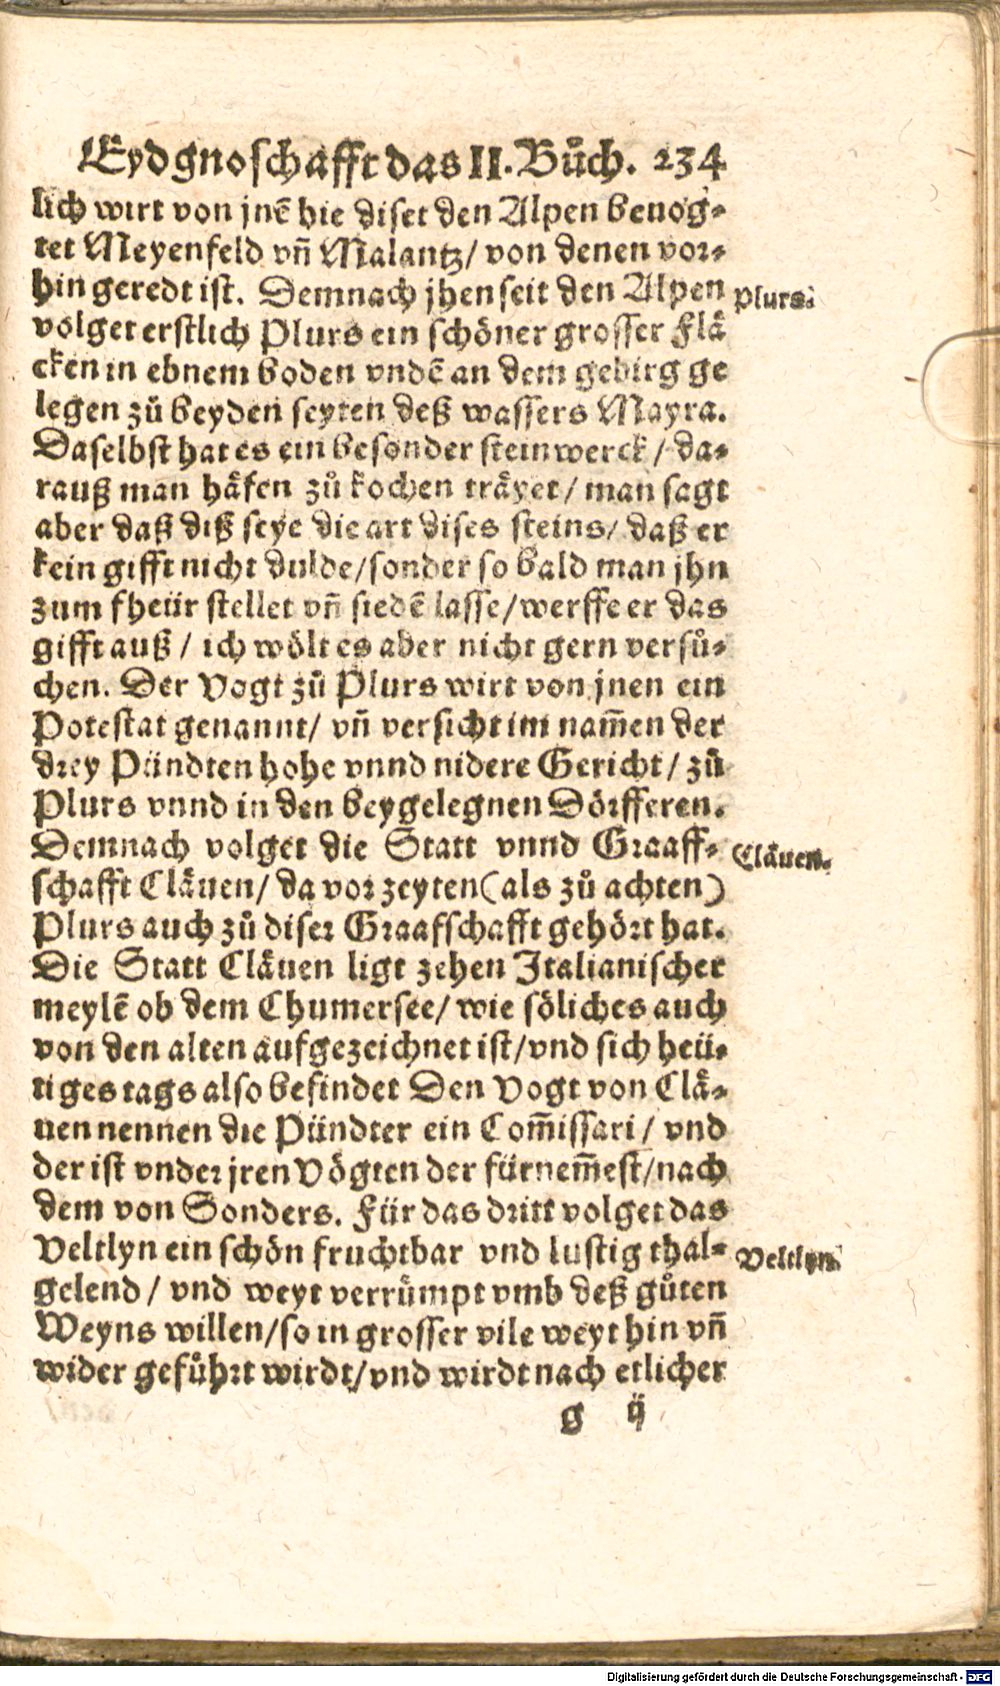 Eydgnoschafft das II. Bůch. 234
lich wirt von jnē hie diset den Alpen beuog-
tet Meyenfeld vñ Malantz/ von denen vor-
hin geredt ist. Demnach jhenseit den Alpen
Plurs.
volget erstlich Plurs ein schöner grosser Flä
cken in ebnem boden vndē an dem gebirg ge
legen zů beyden seyten deß wassers Mayra.
Daselbst hat es ein besonder steinwerck/ da-
rauß man häfen zů kochen träyet/ man sagt
aber daß diß seye die art dises steins/ daß er
kein gifft nicht dulde/sonder so bald man jhn
zum fheür stellet vñ siedē lasse/werffe er das
gifft auß/ ich wölt es aber nicht gern versů-
chen. Der Vogt zů Plurs wirt von jnen ein
Potestat genannt/ vñ versicht im nam̄en der
drey Pündten hohe vnnd nidere Gericht/ zů
Plurs vnnd in den beygelegnen Dörfferen.
Demnach volget die Statt vnnd Graaff-
Cläuen.
schafft Cläuen/ da vor zeyten (als zů achten)
Plurs auch zů diser Graafschafft gehört hat.
Die Statt Cläuen ligt zehen Italianischer
meylē ob dem Chumersee/ wie söliches auch
von den alten aufgezeichnet ist/vnd sich heü-
tiges tags also befindet Den Vogt von Clä-
uen nennen die Pündter ein Com̄issari/ vnd
der ist vnder jren Vögten der fürnem̄est/nach
dem von Sonders. Für das dritt volget das
Veltlyn ein schön fruchtbar vnd lustig thal-
Veltlyn.
gelend/ vnd weyt verrümpt vmb deß gůten
Weyns willen/so in grosser vile weyt hin vñ
wider gefůhrt wirdt/vnd wirdt nach etlicher
g ij
Digitalisierung gefördert durch die Deutsche Forschungsgemeinschaft - DFG